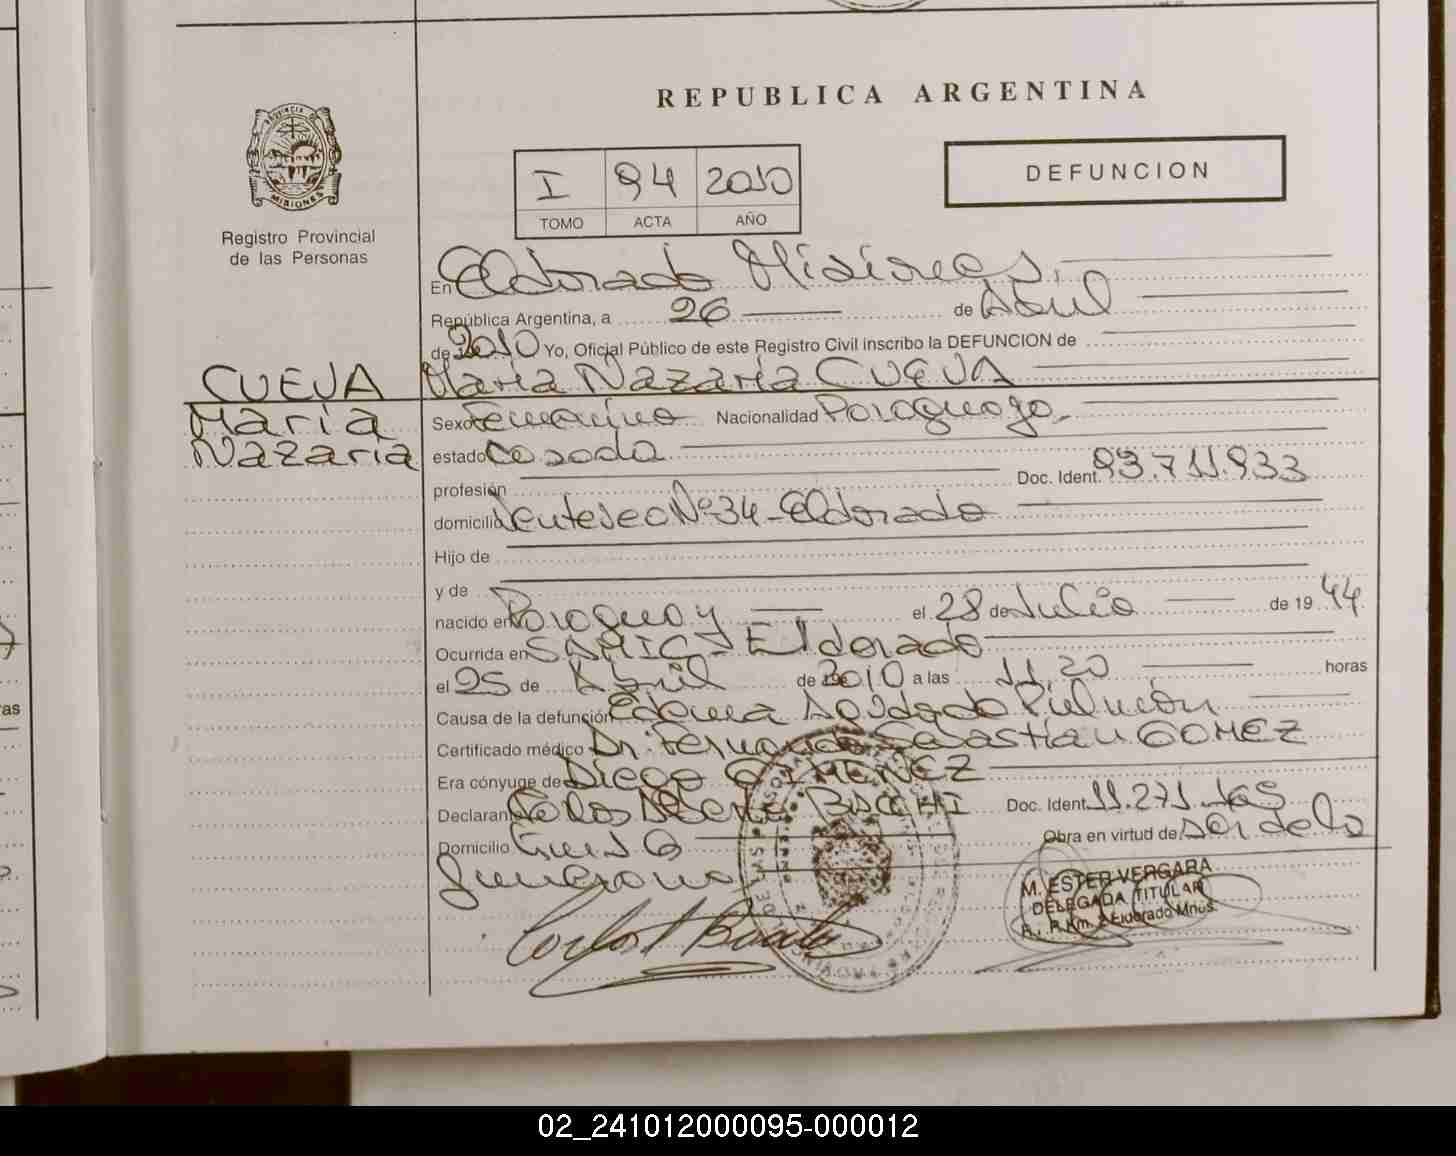 REPUBLICA ARGENTINA
PROVINCIA DE MISIONES
Registro Provincial
de las Personas
I 94 2010
TOMO ACTA AÑO
DEFUNCION
En Eldorado Misiones,
República Argentina, a 26 de Abril
de 2010 Yo, Oficial Público de este Registro Civil inscribo la DEFUNCION de
María Nazaria CUEVA
CUEVA
María
Nazaria
Sexo Femenino Nacionalidad Paraguaya
estado Casada
profesión Doc. Ident. 93.711.933
domicilio Nº 34 - Eldorado
Hijo de
y de
nacido en Paraguay el 28 de Julio de 1944
Ocurrida en SAMIC - Eldorado
el 25 de Abril de 2010 a las 11,20 horas
Causa de la defunción Edema Agudo de Pulmón
Certificado médico Dr. Fernando Sebastian GOMEZ
Era cónyuge de Diego GIMENEZ
Declarant Carlos Doc. Ident. 11.271.165
Domicilio Obra en virtud de ser de la
Funeraria
M. ESTER VERGARA
DELEGADA TITULAR
R. P. Km. 2 Eldorado Mnes.
02_241012000095-000012